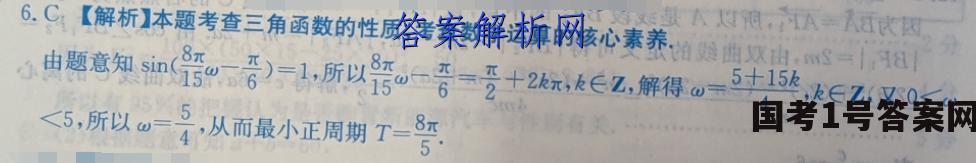 6.C 【解析】本题考查三角函数的性质,考查数学运算的核心素养.
答案解析网
由题意知 sin(8π/15 ω-π/6)=1,所以 8π/15 ω-π/6=π/2+2kπ,k∈Z,解得 ω=(5+15k)/4,k∈Z,又0<ω
<5,所以 ω=5/4,从而最小正周期 T=8π/5.
国考1号答案网